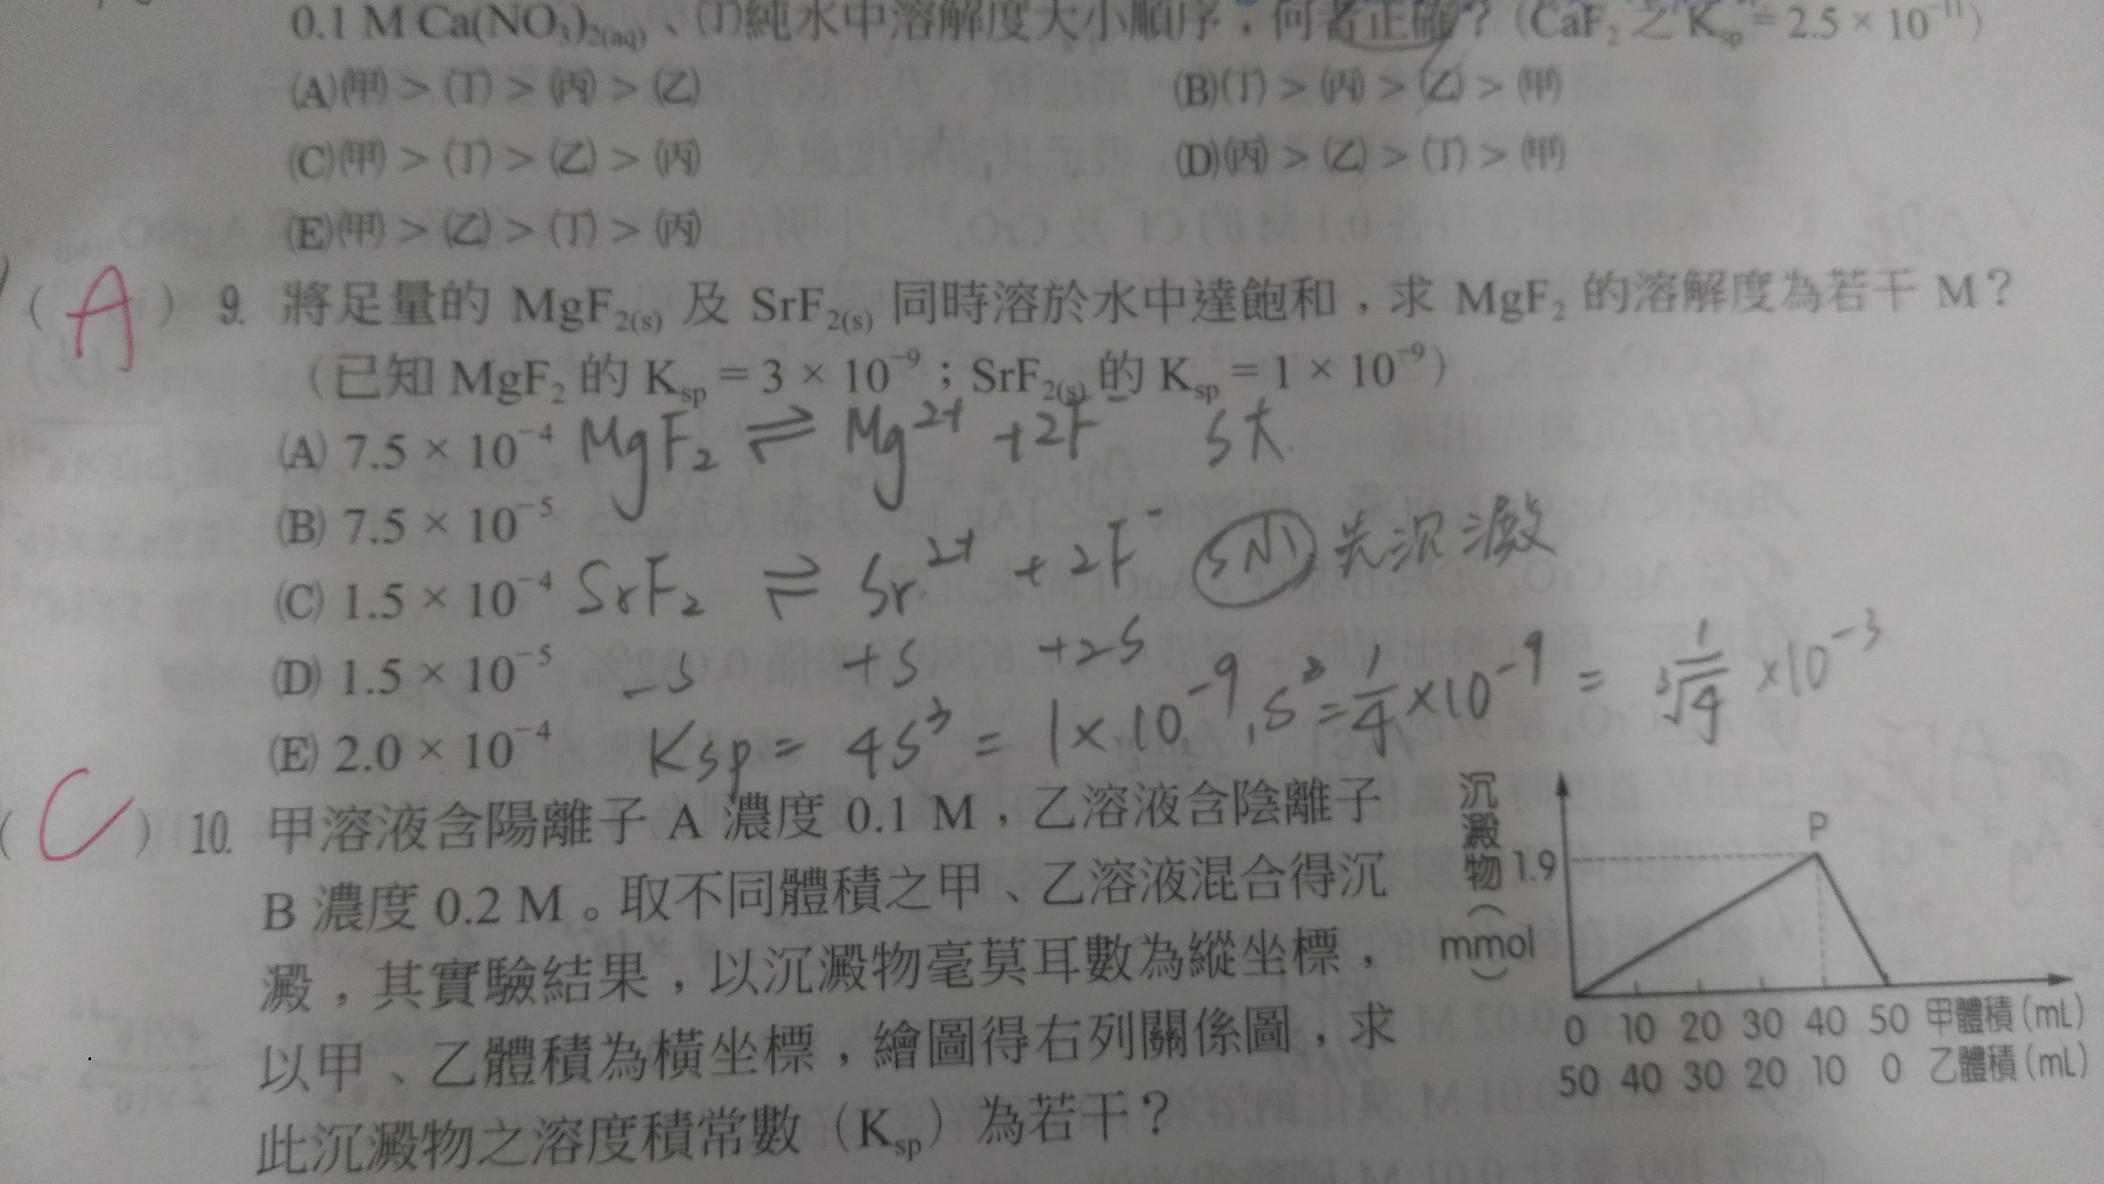 0.1 M Ca(NO₃)₂₍aq₎、(丁)純水中溶解度大小順序，何者正確？（CaF₂ 之 Ksp = 2.5 × 10⁻¹¹）
(A)(甲) > (丁) > (丙) > (乙) (B)(丁) > (丙) > (乙) > (甲)
(C)(甲) > (丁) > (乙) > (丙) (D)(丙) > (乙) > (丁) > (甲)
(E)(甲) > (乙) > (丁) > (丙)
( A ) 9. 將足量的 MgF₂₍s₎ 及 SrF₂₍s₎ 同時溶於水中達飽和，求 MgF₂ 的溶解度為若干 M？
（已知 MgF₂ 的 Ksp = 3 × 10⁻⁹；SrF₂₍s₎ 的 Ksp = 1 × 10⁻⁹）
(A) 7.5 × 10⁻⁴ MgF₂ ⇌ Mg²⁺ + 2F⁻ S大
(B) 7.5 × 10⁻⁵
(C) 1.5 × 10⁻⁴ SrF₂ ⇌ Sr²⁺ + 2F⁻ S小 先沉澱
(D) 1.5 × 10⁻⁵ -S +S +2S
(E) 2.0 × 10⁻⁴ Ksp = 4S³ = 1×10⁻⁹, S³ = 1/4 ×10⁻⁹ = ³√1/4 ×10⁻³
( C ) 10. 甲溶液含陽離子 A 濃度 0.1 M，乙溶液含陰離子
B 濃度 0.2 M。取不同體積之甲、乙溶液混合得沉
澱，其實驗結果，以沉澱物毫莫耳數為縱坐標，
以甲、乙體積為橫坐標，繪圖得右列關係圖，求
此沉澱物之溶度積常數（Ksp）為若干？
沉澱物（mmol）
P
1.9
0 10 20 30 40 50 甲體積(mL)
50 40 30 20 10 0 乙體積(mL)